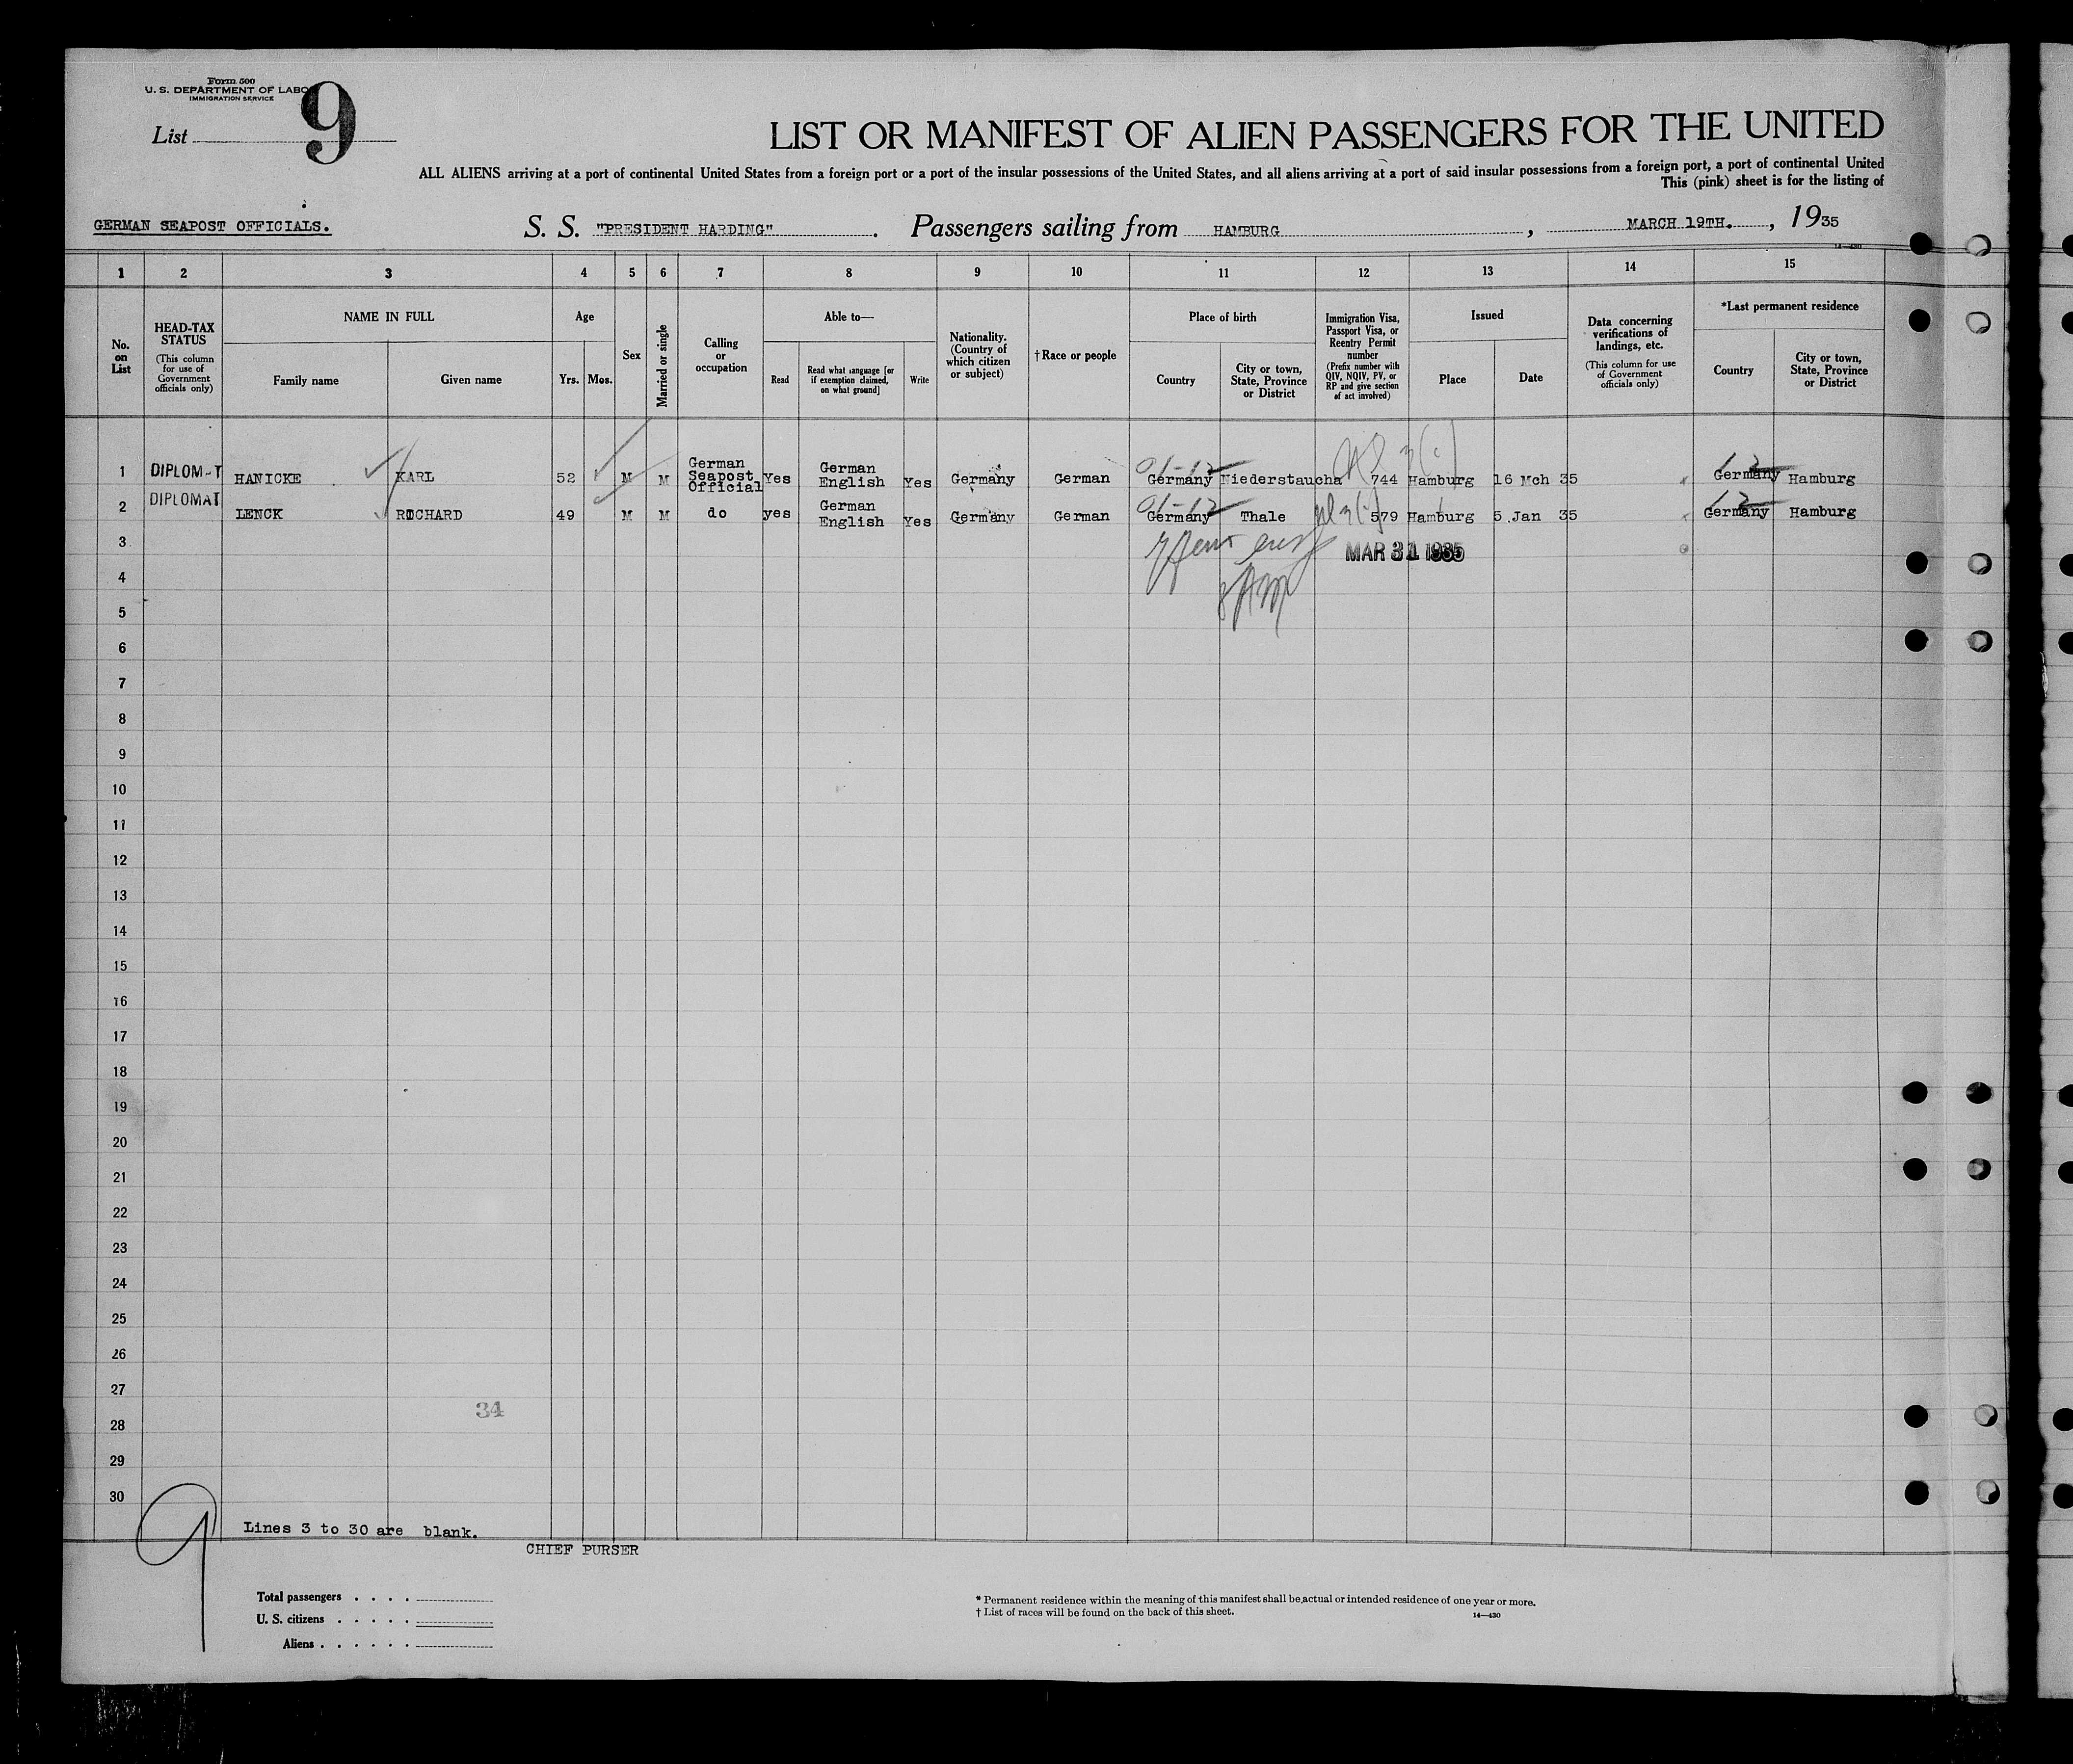 Form 500
U. S. DEPARTMENT OF LABO
IMMIGRATION SERVICE
List 9
LIST OR MANIFEST OF ALIEN PASSENGERS FOR THE UNITED
ALL ALIENS arriving at a port of continental United States from a foreign port or a port of the insular possessions of the United States, and all aliens arriving at a port of said insular possessions from a foreign port, a port of continental United
This (pink) sheet is for the listing of
GERMAN SEAPOST OFFICIALS. S. S. "PRESIDENT HARDING" . Passengers sailing from HAMBURG , MARCH 19TH. , 1935
14—430
1 2 3 4 5 6 7 8 9 10 11 12 13 14 15
No. on List
HEAD-TAX STATUS
(This column for use of Government officials only)
NAME IN FULL
Family name Given name
Age
Yrs. Mos.
Sex
Married or single
Calling or occupation
Able to—
Read
Read what language [or if exemption claimed, on what ground]
Write
Nationality. (Country of which citizen or subject)
†Race or people
Place of birth
Country
City or town, State, Province or District
Immigration Visa, Passport Visa, or Reentry Permit number
(Prefix number with QIV, NQIV, PV, or RP and give section of act involved)
Issued
Place Date
Data concerning verifications of landings, etc.
(This column for use of Government officials only)
*Last permanent residence
Country
City or town, State, Province or District
1 DIPLOM-T HANICKE KARL 52 M M German Seapost Official Yes German English Yes Germany German Germany Niederstaucha 744 Hamburg 16 Mch 35 Germany Hamburg
2 DIPLOMAT LENCK RICHARD 49 M M do yes German English Yes Germany German Germany Thale 579 Hamburg 5 Jan 35 Germany Hamburg
3 MAR 31 1935
4
5
6
7
8
9
10
11
12
13
14
15
16
17
18
19
20
21
22
23
24
25
26
27
34
28
29
30
9
Lines 3 to 30 are blank.
CHIEF PURSER
Total passengers . . . .
U. S. citizens . . . . .
Aliens . . . . . .
* Permanent residence within the meaning of this manifest shall be actual or intended residence of one year or more.
† List of races will be found on the back of this sheet.
14—430